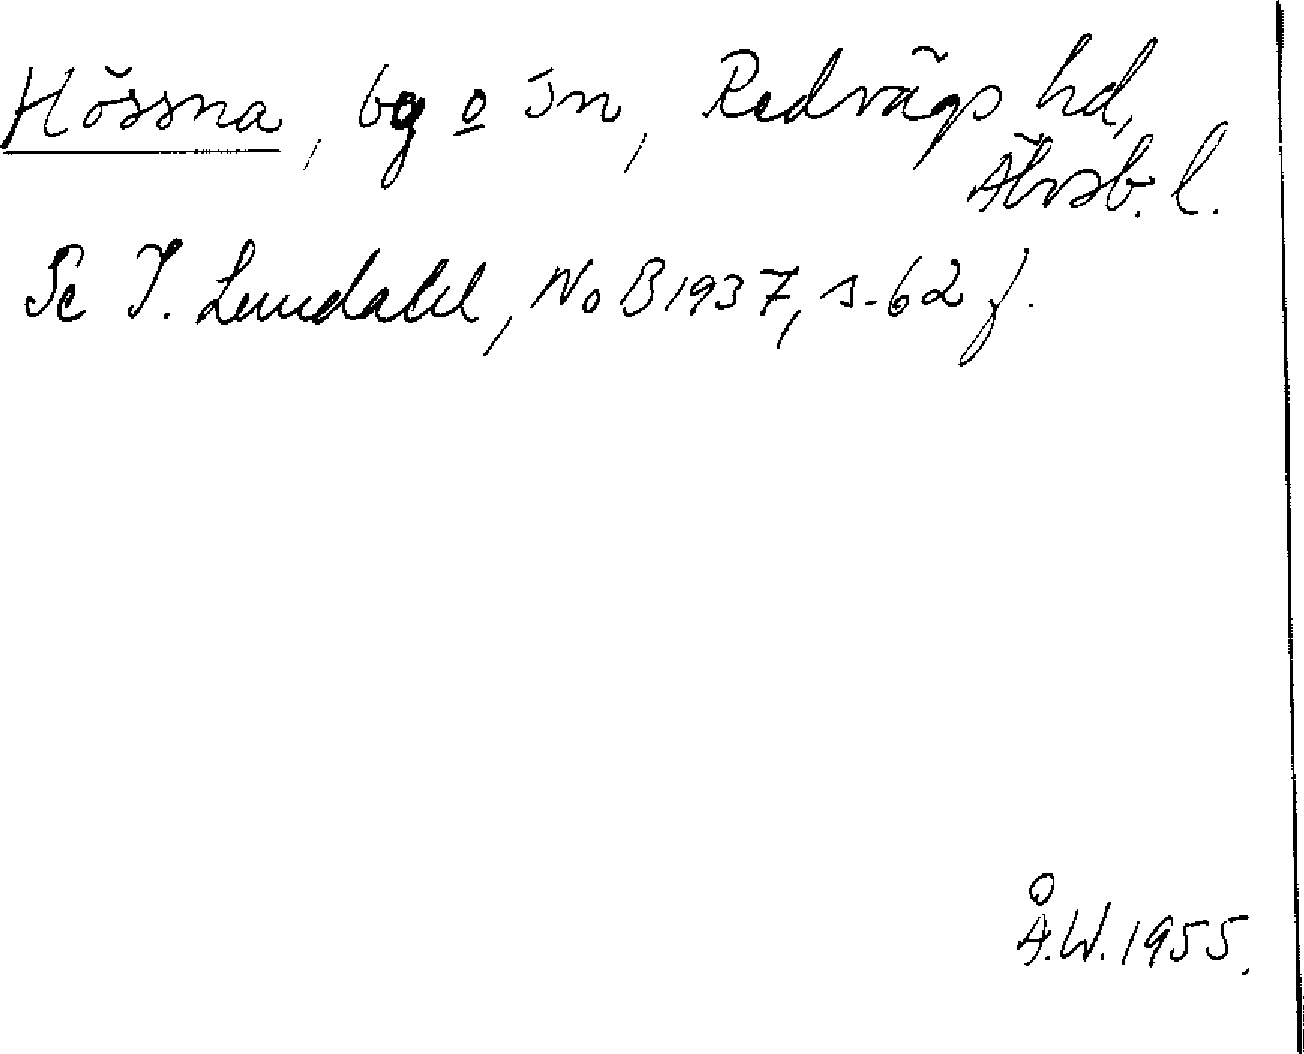 Hössna, by o sn, Redvägs hd,
Älvsb. l.
Se I. Lundahl, NoB 1937, s. 62 f.
Å.W. 1955.